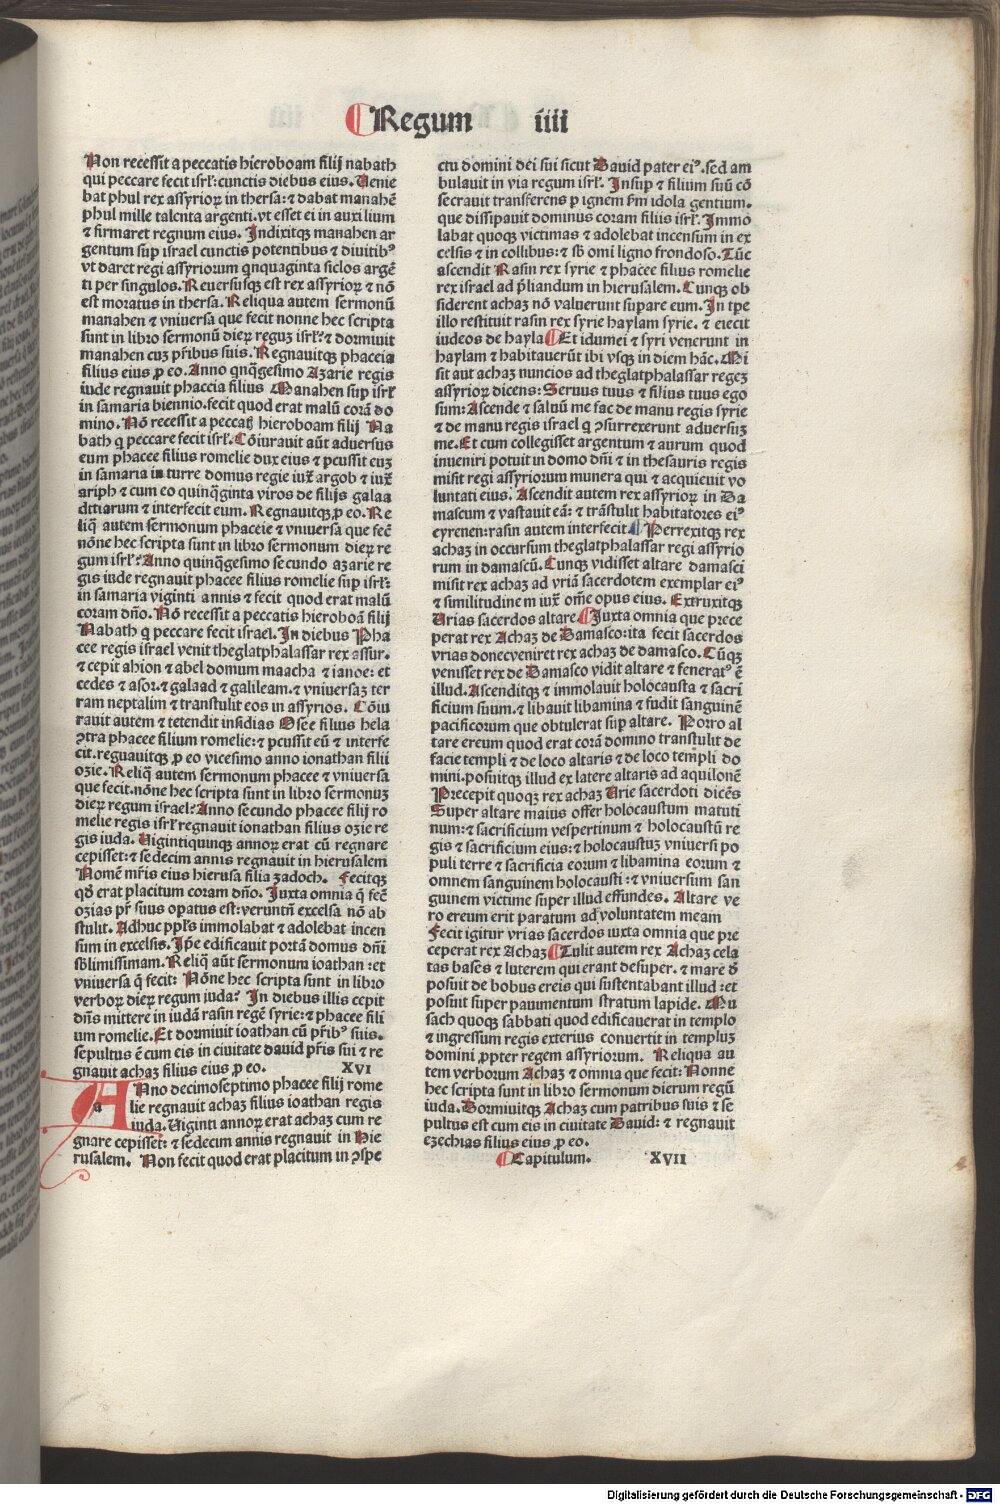 Regum iiii
Non recessit a peccatis hieroboam filij nabath
qui peccare fecit isrł: cunctis diebus eius. Venie
bat phul rex assyrioꝝ in thersa: ⁊ dabat manahē
phul mille talenta argenti. vt esset ei in auxilium
⁊ firmaret regnum eius. Indixitqꝫ manahen ar
gentum suꝑ israel cunctis potentibus ⁊ diuitibꝰ
vt daret regi assyriorum qnquaginta siclos argē
ti per singulos. Reuersusqꝫ est rex assyrioꝝ ⁊ nō
est moratus in thersa. Reliqua autem sermonū
manahen ⁊ vniuersa que fecit nonne hec scripta
sunt in libro sermonū dieꝝ reguꝫ isrł: ⁊ dormiuit
manahen cuꝫ pr̄ibus suis. Regnauitqꝫ phaceia
filius eius ꝓ eo. Anno qnqgesimo Azarie regis
iude regnauit phaccia filius Manahen suꝑ isrł
in samaria biennio. fecit quod erat malū corā do
mino. Nō recessit a peccatꝭ hieroboam filij Na
bath q peccare fecit isrł. Cōiurauit aūt aduersus
eum phacee filius romelie dux eius ⁊ ꝑcussit euꝫ
in samaria in turre domus regie iuxꝭ argob ⁊ iuxꝭ
ariph ⁊ cum eo quinqginta viros de filijs galaa
ditiarum ⁊ interfecit eum. Regnauitqꝫ ꝓ eo. Re
liq̄ autem sermonum phaceie ⁊ vniuersa que fec̄
nōne hec scripta sunt in libro sermonum dieꝝ re
gum isrł? Anno quinqgesimo secundo azarie re
gis iude regnauit phacee filius romelie suꝑ isrł:
in samaria viginti annis ⁊ fecit quod erat malū
coram dn̄o. Nō recessit a peccatis hieroboā filij
Nabath q peccare fecit israel. In diebus Pha
cee regis israel venit theglatphalassar rex assur.
⁊ cepit ahion ⁊ abel domum maacha ⁊ ianoe: et
cedes ⁊ asor. ⁊ galaad ⁊ galileam. ⁊ vniuersaꝫ ter
ram neptalin ⁊ transtulit eos in assyrios. Cōiu
rauit autem ⁊ tetendit insidias Osee filius hela
ꝯtra phacee filium romelie: ⁊ ꝑcussit eū ⁊ interfe
cit. regnauitqꝫ ꝓ eo vicesimo anno ionathan filii
ozie. Reliq̄ autem sermonum phacee ⁊ vniuersa
que fecit. nōne hec scripta sunt in libro sermonuꝫ
dieꝝ regum israel? Anno secundo phacee filij ro
melie regis isrł regnauit ionathan filius ozie re
gis iuda. Vigintiquinqꝫ annoꝝ erat cū regnare
cepisset: ⁊ sedecim annis regnauit in hierusalem
Nomē mr̄is eius hierusa filia zadoch. Fecitqꝫ
qđ erat placitum coram dn̄o. Iuxta omnia q̄ fec̄
ozias pr̄ suus opatus est: verūtn̄ excelsa nō ab
stulit. Adhuc ppls immolabat ⁊ adolebat incen
sum in excelsis. Ip̄e edificauit portā domus dn̄i
sb̄limissimam. Reliq̄ aūt sermonum ioathan: et
vniuersa q̄ fecit: Nōne hec scripta sunt in libro
verboꝝ dieꝝ regum iuda? In diebus illis cepit
dn̄s mittere in iudā rasin regē syrie: ⁊ phacee fili
um romelie. Et dormiuit ioathan cū pr̄ibꝰ suis.
sepultus ē cum eis in ciuitate dauid pr̄is sui ⁊ re
gnauit achaz filius eius ꝓ eo. XVI
Anno decimoseptimo phacee filij rome
lie regnauit achaz filius ioathan regis
iuda. Viginti annoꝝ erat achaz cum re
gnare cepisset: ⁊ sedecim annis regnauit in Hie
rusalem. Non fecit quod erat placitum in ꝯspe
ctu domini dei sui sicut Dauid pater eiꝰ. sed am
bulauit in via regum isrł. Insuꝑ ⁊ filium suū cō
secrauit transferens ꝑ ignem sm̄ idola gentium.
que dissipauit dominus coram filiis isrł. Immo
labat quoqꝫ victimas ⁊ adolebat incensum in ex
celsis ⁊ in collibus: ⁊ sb̄ omi ligno frondoso. Tūc
ascendit Rasin rex syrie ⁊ phacee filius romelie
rex israel ad p̄liandum in hierusalem. Cunqꝫ ob
siderent achaz nō valuerunt suꝑare eum. In tꝑe
illo restituit rasin rex syrie haylam syrie. ⁊ eiecit
iudeos de hayla Et idumei ⁊ syri venerunt in
haylam ⁊ habitauerūt ibi vsqꝫ in diem hāc. Mi
sit aut achaz nuncios ad theglatphalassar regeꝫ
assyrioꝝ dicens: Seruus tuus ⁊ filius tuus ego
sum: Ascende ⁊ saluū me fac de manu regis syrie
⁊ de manu regis israel q ꝯsurrexerunt aduersuꝫ
me. Et cum collegisset argentum ⁊ aurum quod
inueniri potuit in domo dn̄i ⁊ in thesauris regis
misit regi assyriorum munera qui ⁊ acquieuit vo
luntati eius. Ascendit autem rex assyrioꝝ in Da
mascum ⁊ vastauit eā: ⁊ trāstulit habitatores eiꝰ
cyrenen: rasin autem interfecit. Perrexitqꝫ rex
achaz in occursum theglatphalassar regi assyrio
rum in damascū. Cunqꝫ vidisset altare damasci
misit rex achaz ad vriā sacerdotem exemplar eiꝰ
⁊ similitudinem iuxꝭ om̄e opus eius. Extruxitqꝫ
Vrias sacerdos altare. Iuxta omnia que prece
perat rex Achaz de Damasco: ita fecit sacerdos
vrias donecveniret rex achaz de damasco. Cūqꝫ
venisset rex de Damasco vidit altare ⁊ feneratꝰ ē
illud. Ascenditqꝫ ⁊ immolauit holocausta ⁊ sacri
ficium suum. ⁊ libauit libamina ⁊ fudit sanguinē
pacificorum que obtulerat suꝑ altare. Porro al
tare ereum quod erat corā domino transtulit de
facie templi ⁊ de loco altaris ⁊ de loco templi do
mini. posuitqꝫ illud ex latere altaris ad aquilonē
Precepit quoqꝫ rex achaz Vrie sacerdoti dicēs
Super altare maius offer holocaustum matuti
num: ⁊ sacrificium vespertinum ⁊ holocaustū re
gis ⁊ sacrificium eius: ⁊ holocaustuꝫ vniuersi po
puli terre ⁊ sacrificia eorum ⁊ libamina eorum ⁊
omnem sanguinem holocausti: ⁊ vniuersum san
guinem victime super illud effundes. Altare ve
ro ereum erit paratum ad voluntatem meam
Fecit igitur vrias sacerdos iuxta omnia que pre
ceperat rex Achaz Tulit autem rex Achaz cela
tas bases ⁊ luterem qui erant desuper. ⁊ mare đ
posuit de bobus ereis qui sustentabant illud: et
posuit super pauimentum stratum lapide. Mu
sach quoqꝫ sabbati quod edificauerat in templo
⁊ ingressum regis exterius conuertit in templuꝫ
domini ꝓpter regem assyriorum. Reliqua au
tem verborum Achaz ⁊ omnia que fecit: Nonne
hec scripta sunt in libro sermonum dierum regū
iuda. Dormiuitqꝫ Achaz cum patribus suis ⁊ se
pultus est cum eis in ciuitate Dauid: ⁊ regnauit
ezechias filius eius ꝓ eo.
Capitulum. XVII
Digitalisierung gefördert durch die Deutsche Forschungsgemeinschaft - DFG